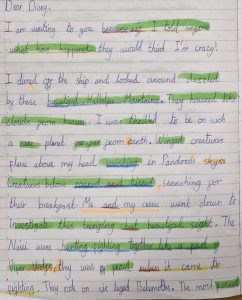 Dear Diary,
I am writing to you because if I told anyone
what has happened they would think I'm crazy!
I climed off the ship and looked around dazzled
by these beautiful Halleluja Mountains. They floated like
clouds from heaven. I was thrilled to be on such
a rare planet far from earth. Winged creatures
flew above my head in Pandora's skyss
Creatures below roared and hissed searching for
their breakfast. Me and my crew went down to
investigate this tempting but beautiful sight. The
Navi were hunting fighting together like a pack
They were proud when it came to
fighting. They rode on six leged Behemoths. The most